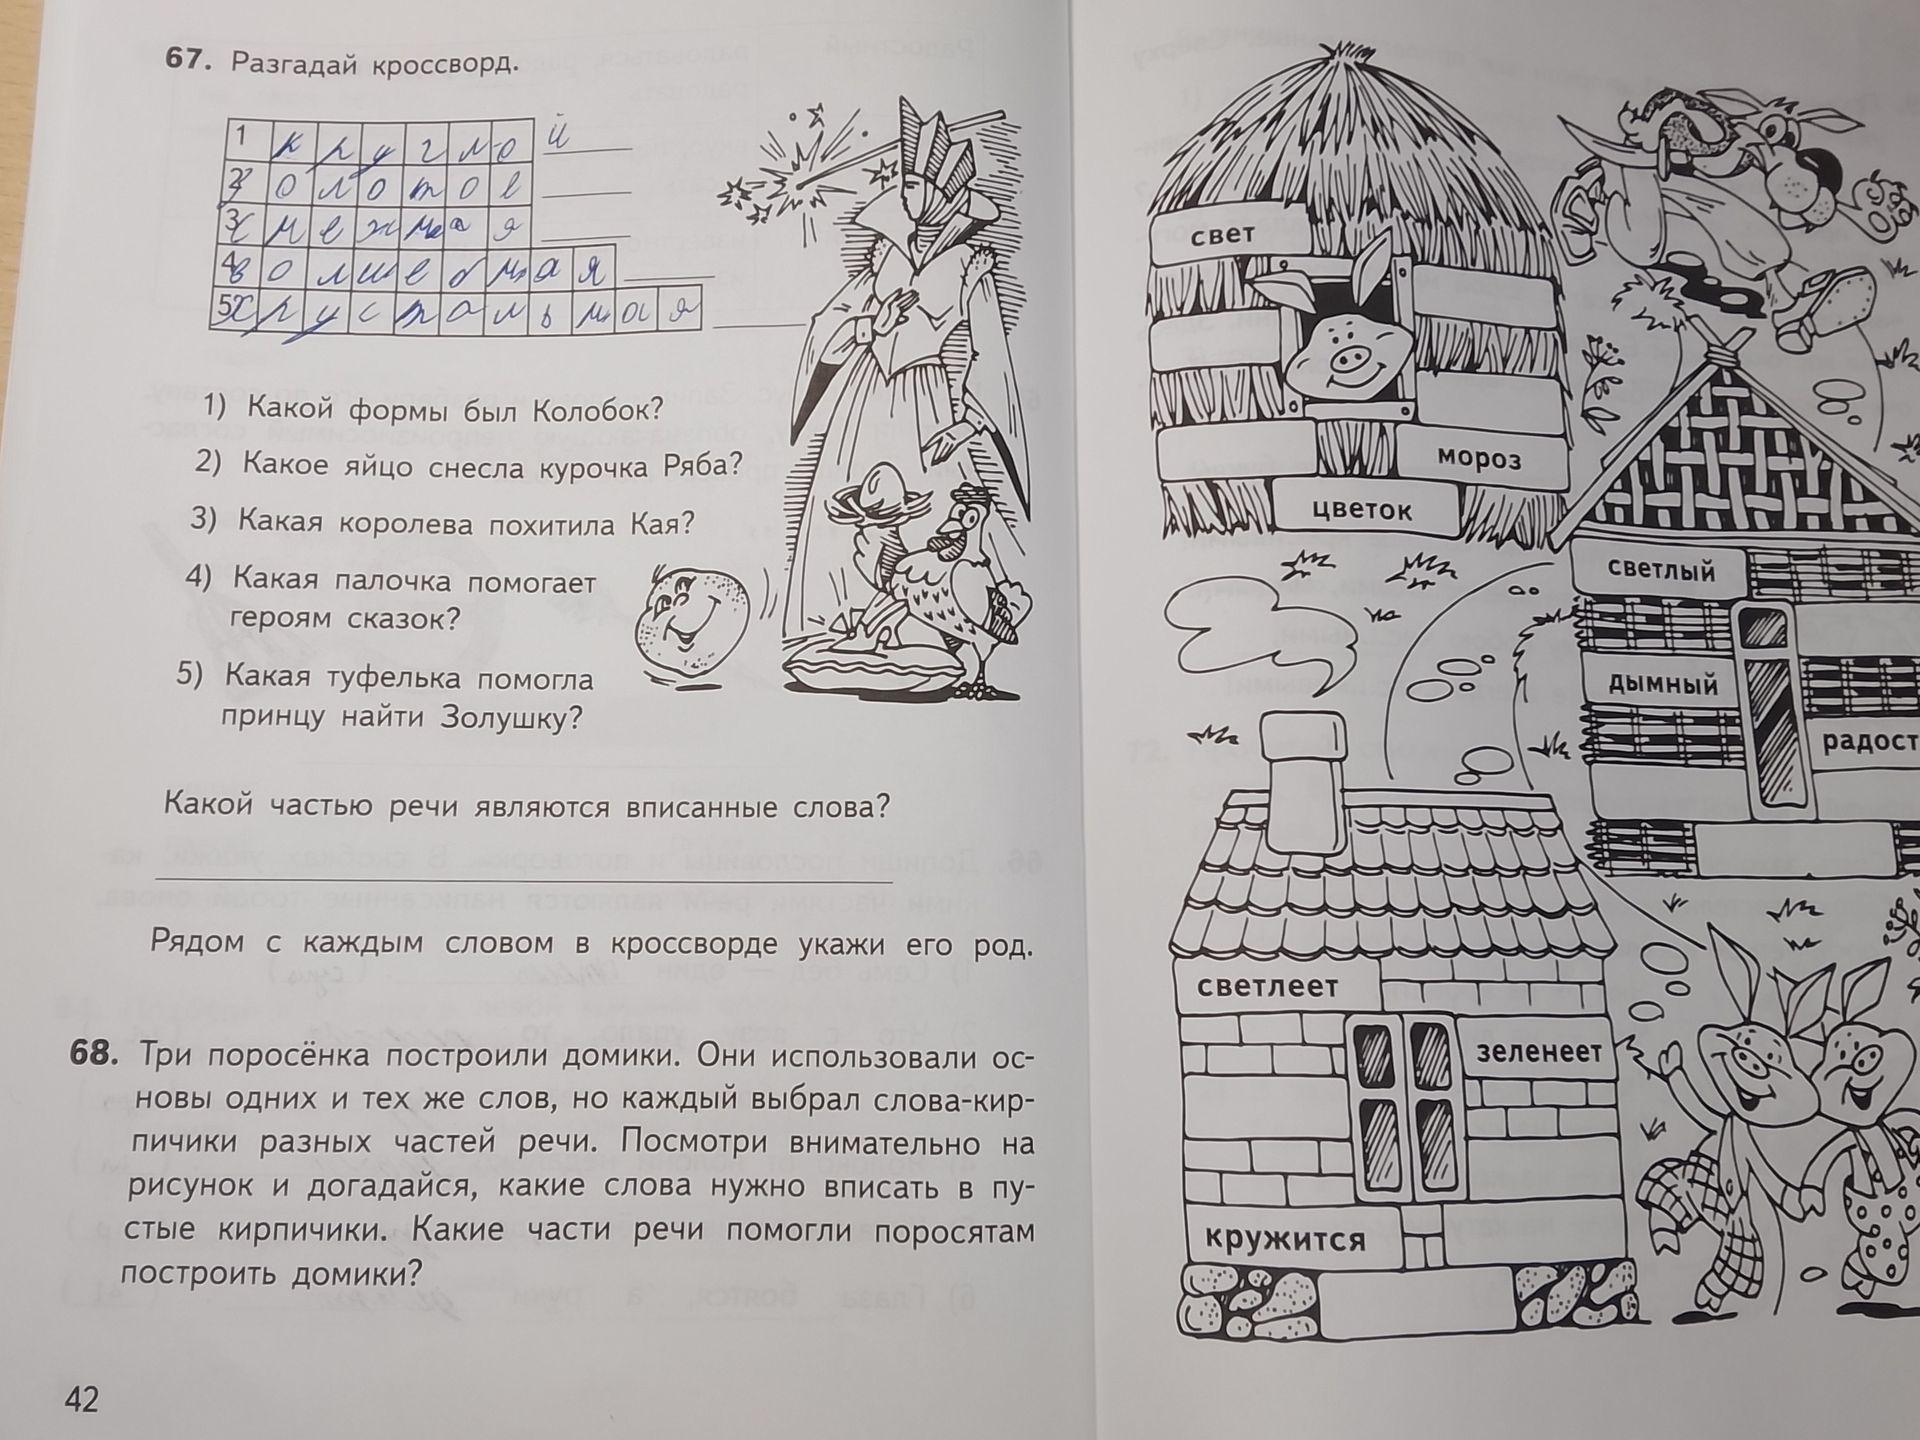 67. Разгадай кроссворд.
1 к р у г л о й
2 з о л о т о е
3 с н е ж н а я
4 в о л ш е б н а я
5 х р у с т а л ь н а я
1) Какой формы был Колобок?
2) Какое яйцо снесла курочка Ряба?
3) Какая королева похитила Кая?
4) Какая палочка помогает
героям сказок?
5) Какая туфелька помогла
принцу найти Золушку?
Какой частью речи являются вписанные слова?
Рядом с каждым словом в кроссворде укажи его род.
68. Три поросёнка построили домики. Они использовали ос-
новы одних и тех же слов, но каждый выбрал слова-кир-
пичики разных частей речи. Посмотри внимательно на
рисунок и догадайся, какие слова нужно вписать в пу-
стые кирпичики. Какие части речи помогли поросятам
построить домики?
42
свет
мороз
цветок
светлый
дымный
радост
светлеет
зеленеет
кружится